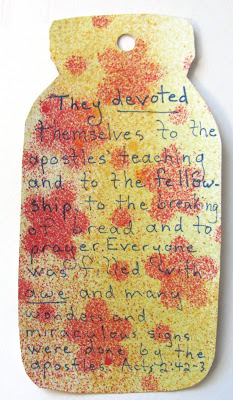 They devoted
themselves to the
apostles' teaching
and to the fellow-
ship to the breaking
of bread and to
prayer. Everyone
was filled with
awe and many
wonders and
miraculous signs
were done by the
apostles. Acts 2:42-3